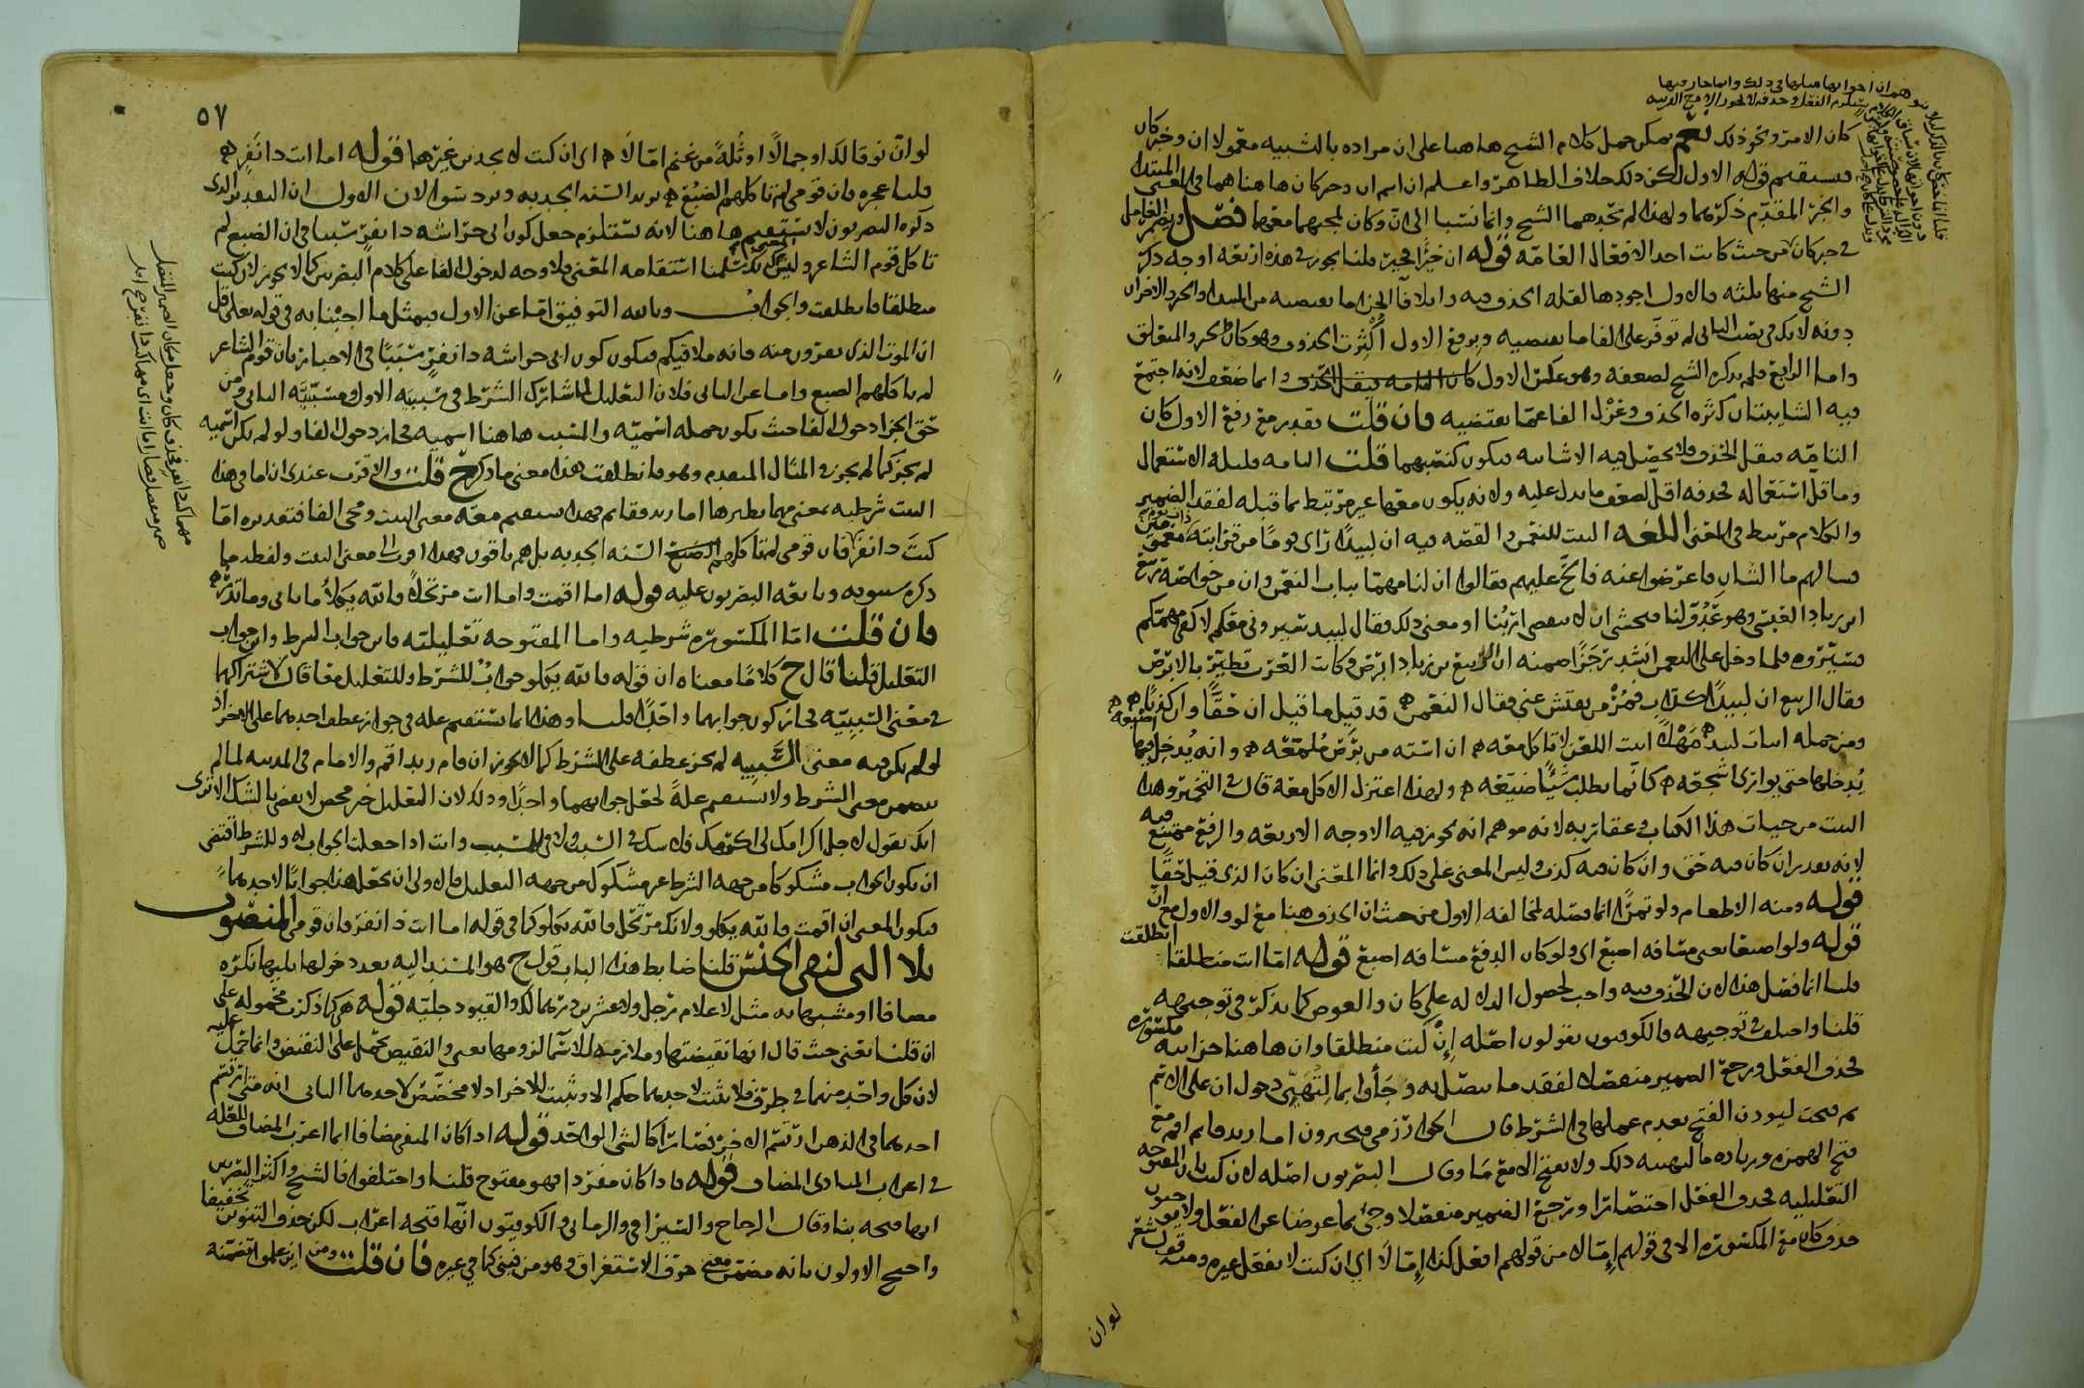 كان الامر ونحو ذلك نعم يمكن حمل كلام الشيخ هاهنا على ان مراده بالتشبيه معمولا ان وخبر كان
فيستقيم قوله الاول لكن ذلك خلاف الظاهر واعلم ان اسم ان وخبر كان هاهنا هما في المعنى المبتدا
والخبر المقدم ذكرهما ولهذا لم يحدهما الشيخ وانما نسبا الى ان وكان لمجيهما معهما فصل ويضمر العامل
في خبر كان من حيث كانت احد الافعال العامة قوله ان خيرا فخير قلنا يجوز في هذه اربعة اوجه ذكر
الشيخ منها ثلثة فالاول اجودها لقلة الحذف فيه وايلا فآ الجزا ما يقتضيه من المبتدا والخبر والاخران
دونه لانك في نصب الثاني لم توفر على الفا ما يقتضيه وبرفع الاول اكثرت الحذف وهو كان والخبر والمتعلق
واما الرابع فلم يذكره الشيخ لضعفه وهو عكس الاول وانما ضعف لانه اجتمع
فيه الشايبتان كثرة الحذف وعزل الفا عما يقتضيه فان قلت تقدير مع رفع الاول كان
التامة فيقل الحذف ولا يحصل فيه الا شايبه فيكون كنصبهما قلت التامة قليلة الاستعمال
وما قل استعماله فحذفه اقل لضعف ما يدل عليه ولانه يكون معها غير مرتبط بما قبله لفقد الضمير
والكلام مرتبط في المعنى اللغه البيت للنعمن والقصة فيه ان لبيدا راى يوما من قرابته
فسالهم ما الشان فاعرضوا عنه فالح عليهم فقالوا ان لنا مهما بباب النعمن وان من خواصه ربيع
ابن زياد العبسي وهو عدو لنا فنخشى ان لا يقضى اربنا او معنى ذلك فقال لبيد سيروني معكم لاكفي مهمكم
فسيروه فلما دخل على النعمن انشد ترجزا ضمنه ان الربيع بن زياد ابرص وكانت العرب تطير بالابرص
فقال الربيع ان لبيدا كذاب فمر من يفتش عني فقال النعمن قد قيل ما قيل ان حقا وان كذبا
ومن جملة ابيات لبيد مهلا ابيت اللعن لا تاكل معه ان استه من برص ملمعه وانه يدخل فيها اصبعه
يدخلها حتى يوارى اشجعه كانما يطلب شيئا ضيعه ولهذا اعتزل الاكل معه قال في التخمير وهذا
البيت من حيات هذا الكتاب وعقاربه لانه موهم انه يجوز فيه الاوجه الاربعة والرفع ممتنع فيه
لانه تقدير ان كان فيه حق وان كان فيه كذب وليس المعنى على ذلك وانما المعنى ان كان الذي قيل حقا
قوله ومنه الا طعام ولو تمرا انما فصله لمخالفه الاول من حيث ان الحذف هنا مع لو والاول مع ان
قوله ولو اصبعا يعني مسافة اصبع اي ولو كان الدفع مسافة اصبع قوله اما انت منطلقا انطلقت
قلنا انما فصل هذا لان الحذف فيه واجب لحصول الدلالة على كان والعوض كما يذكر في توجيهه
قلنا واختلف في توجيهه فالكوفيون يقولون اصله إن كنت منطلقا وان هاهنا جزائية مكسورة
فحذف الفعل ورجع الضمير منفصلا لفقد ما يتصل به وجاوا بما لتهيئ دخول ان على الاسم
ثم فتحت ليوذن الفتح بعدم عملها في الشرط قال الخوارزمي ويجيزون اما زيد قايم اقم مع
فتح الهمزة وزيادة ما لتهيئه ذلك ولا يفتح الا مع ما وقال البصريون اصله لان كنت بان المفتوحة
التعليلية فحذف الفعل اختصارا ورجع الضمير منفصلا وجئ بما عوضا عن الفعل ولا يجيزون
حذف كان مع المكسورة الا في قولهم إما لا من قولهم افعل كذا إما لا اي ان كنت لا تفعل غيره ومنه قول شعر
لو ان
٥٧
لو ان نوقا لك او جمالا او ثلة من غنم اما لا اي ان كنت لا تجد من غيرها قوله اما انت ذا نفر
قلنا عجزه فان قومي لم تاكلهم الضبع يريد السنة الجدبة ويرد سوالان الاول ان التقدير الذي
ذكره البصريون لا يستقيم هاهنا لانه يستلزم جعل كون ابي خراشه ذا نفر سببا في ان الضبع لم
تاكل قوم الشاعر وليس كذلك سلمنا استقامة المعنى فلا وجه لدخول الفا على كلام البصريين كما لا يجوز لان كنت
منطلقا فانطلقت والجواب وبالله التوفيق اما عن الاول فبمثل ما اجبنا به في قوله تعالى قل
ان الموت الذي تفرون منه فانه ملاقيكم فيكون كون ابي خراشه ذا نفر سببا في الاخبار بان قوم الشاعر
لم تاكلهم الضبع واما عن الثاني فلان التعليل لما شارك الشرط في سببيه الاول ومسببيه الثاني ومن
حق الجزا دخول الفا حيث يكون جملة اسمية والمسبب هاهنا اسميه فجاز دخول الفا ولو لم يكن اسميه
لم يجز كما لم يجز في المثال المتقدم وهو فانطلقت هذا معنى ما ذكره ح قلت والاقرب عندي ان اما في هذا
البيت شرطيه بمعنى مهما نظيرها اما زيد فقايم فهذا يستقيم معه معنى البيت ومجي الفا فتقديره اما
كنت ذا نفر فان قومي لم تاكلهم الضبع السنة الجدبة بل هم باقون فهذا اقرب الى معنى البيت ولفظه مما
ذكره سيبويه وتابعه البصريون عليه قوله اما اقمت واما انت مرتحلا فالله يكلأ ما تاتي وما تذر
فان قلت اما المكسورة شرطيه واما المفتوحة تعليلية فاين جواب الشرط واين جواب
التعليل قلنا قال ح كلاما معناه ان قوله فالله يكلو جواب للشرط وللتعليل معا قال لاشتراكهما
في معنى السببية فجاز كون جوابهما واحدا قلنا وهذا انما يستقيم عله في جواز عطف احدهما على الاخر اذ
لو لم يكن فيه معنى السببيه لم يجز عطفه على الشرط كما لا يجوز ان قام زيد اقم والامام في المدينه لما لم
يتضمن معنى الشرط ولا يستقيم علة لجعل جوابهما واحدا وذلك لان التعليل خبر محض لا يقضي بالشك الا ترى
انك تقول لاجل اكرامك لي اكرمك فلا شك في السبب ولا في المسبب وانت اذا جعلت الجواب له وللشرط اقتضى
ان يكون الجواب مشكوكا من جهة الشرط غير مشكوك من جهة التعليل فالاولى ان نجعل هذا جوابا لاحدهما
فيكون المعنى ان اقمت فالله يكلو ولانك مرتحل فالله يكلو كما في قوله اما انت ذا نفر فان قومي المنصوب
بلا التي لنفي الجنس قلنا ضابط هذا الباب قول ح هو المسند اليه بعد دخولها يليها نكرة
مضافا او مشبها به مثل لا غلام رجل ولا عشرين درهما لك والقيود جلية قوله هي كما ذكرت محمولة على
ان قلنا يعني حيث قال انها نقيضتها وملازمة للاسما لزومها يعني والنقيض يحمل على النقيض وانما حمل عليه
لان كل واحد منهما في طرف فلا يثبت لاحدهما حكم الا ويثبت للاخر اذ لا مخصص لاحدهما الثاني انه متى ارتسم
احدهما في الذهن ارتسم الاخر فصارا كالشي الواحد قوله اذا كان المنفي مضافا انما اعرب المضاف للعلة
في اعراب المنادى المضاف قوله فاذا كان مفردا فهو مفتوح قلنا واختلفوا فالشيخ واكثر البصريين
انها فتحة بنا وقال الزجاج والسيرافي والرماني والكوفيون انها فتحة اعراب لكن حذف التنوين تخفيفا
واحتج الاولون بانه مضمن معنى حرف الاستغراق وهو من فبني كما في غيره فان قلت ومن اين علموا تضمنه